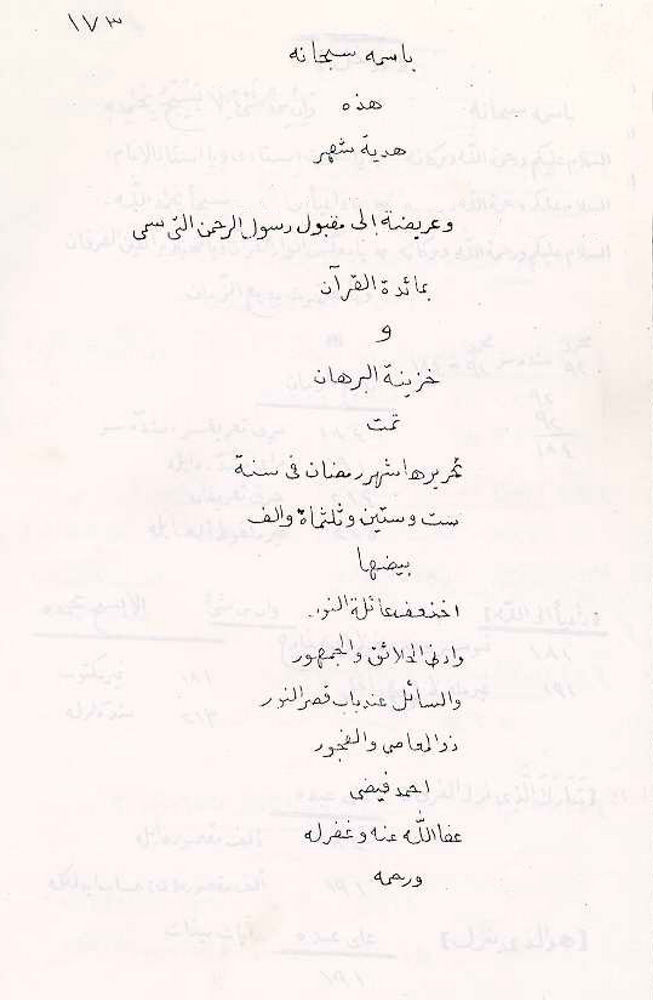 ١٧٣
باسمه سبحانه
هذه
هدية شهر
وعريضة إلى مقبول رسول الرحمن التى سمى
بمائدة القرآن
و
خزينة البرهان
تمت
تحريرها شهر رمضان فى سنة
ست وستين وثلثماة والف
بيضها
عائلة النور
وادنى الخلائق والجمهور
والسائل عند باب قصر النور
ذو المعاصى والفجور
احمد فيضى
عفا الله عنه وغفر له
ورحمه